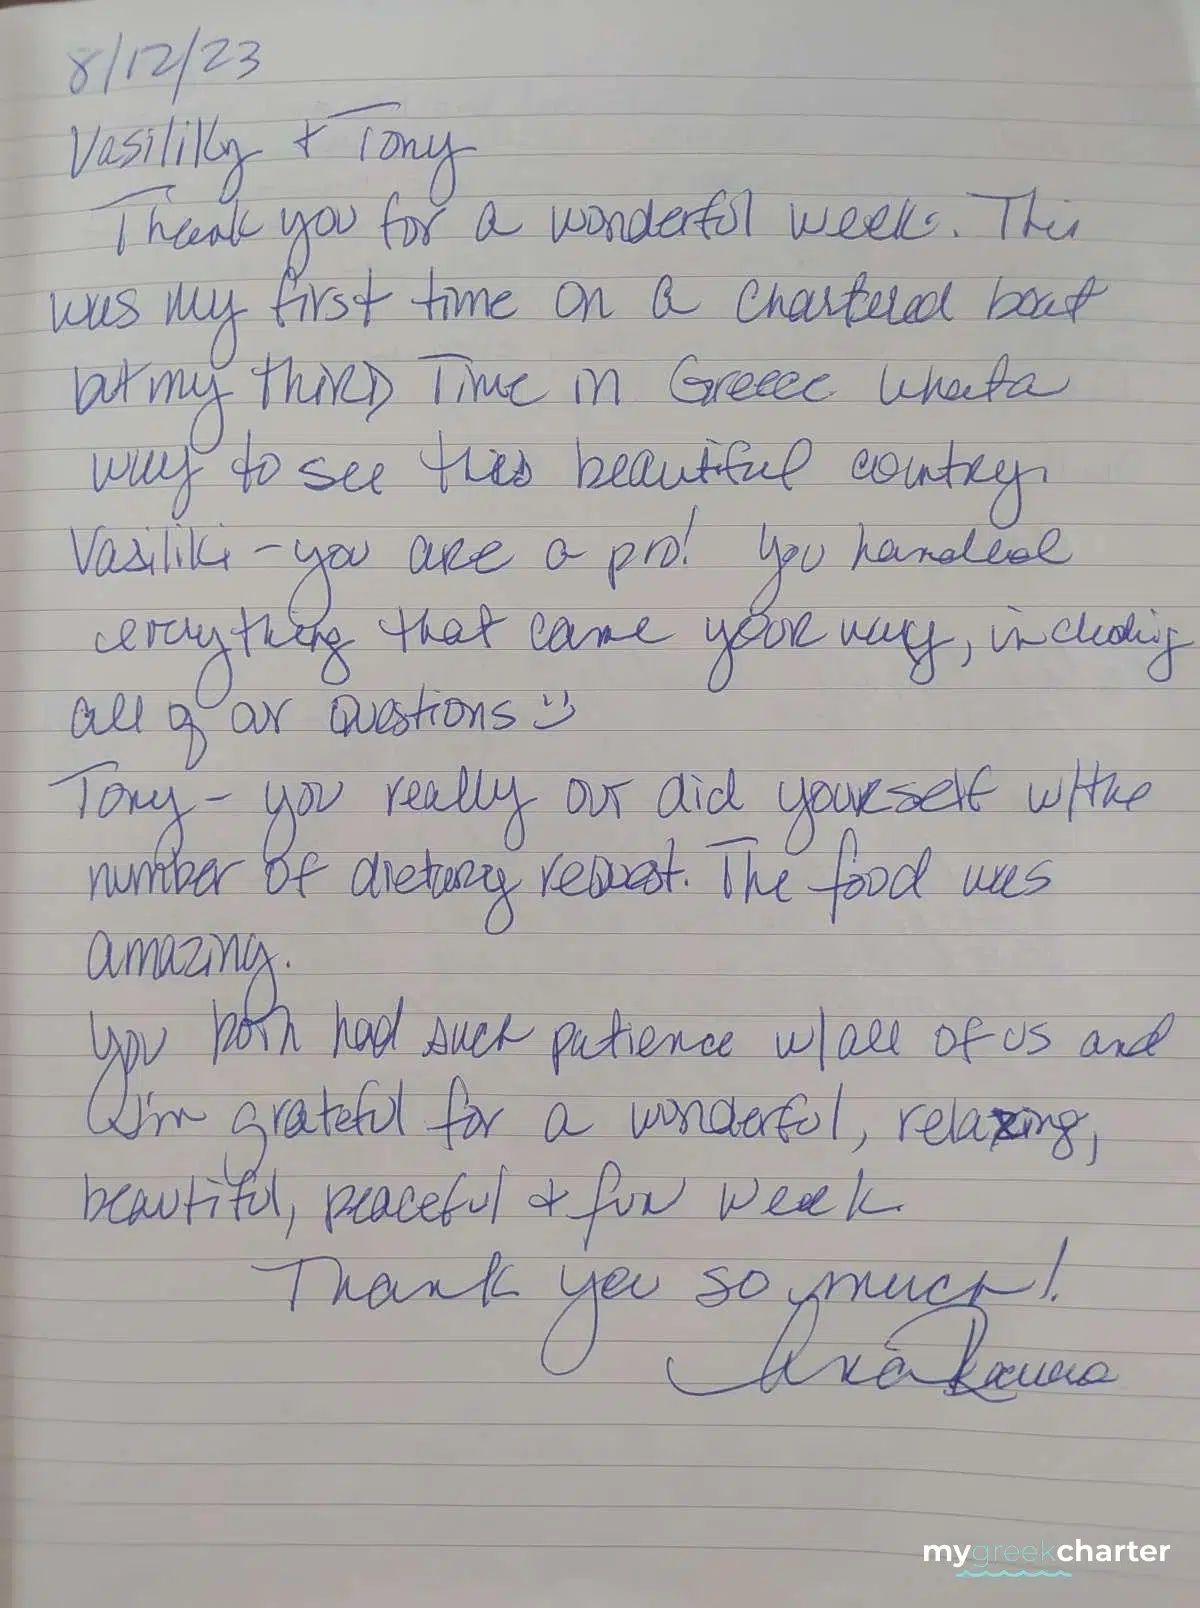 8/12/23
Vasiliky + Tony
Thank you for a wonderful week. This
was my first time on a chartered boat
but my THIRD Time in Greece what a
way to see this beautiful country.
Vasiliki - you are a pro! You handled
everything that came your way, including
all of our questions :)
Tony - you really out did yourself w/the
number of dietary request. The food was
amazing.
You both had such patience w/all of us and
I'm grateful for a wonderful, relaxing,
beautiful, peaceful + fun week.
Thank you so much!
mygreekcharter